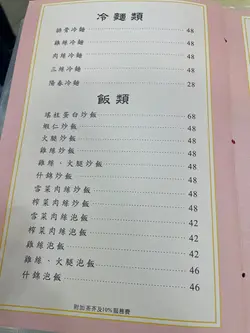 冷麵類
醉雞冷麵 48
雞絲冷麵 48
肉絲冷麵 48
三絲冷麵 48
陽春冷麵 28
飯類
瑤柱蛋白炒飯 68
蝦仁炒飯 48
火腿炒飯 48
雞絲炒飯 48
雞絲・火腿炒飯 48
什錦炒飯 48
雪菜肉絲炒飯 48
榨菜肉絲炒飯 48
雪菜肉絲泡飯 42
榨菜肉絲泡飯 42
雞絲泡飯 42
雞絲・火腿泡飯 46
什錦泡飯 46
附加茶芥及10%服務費